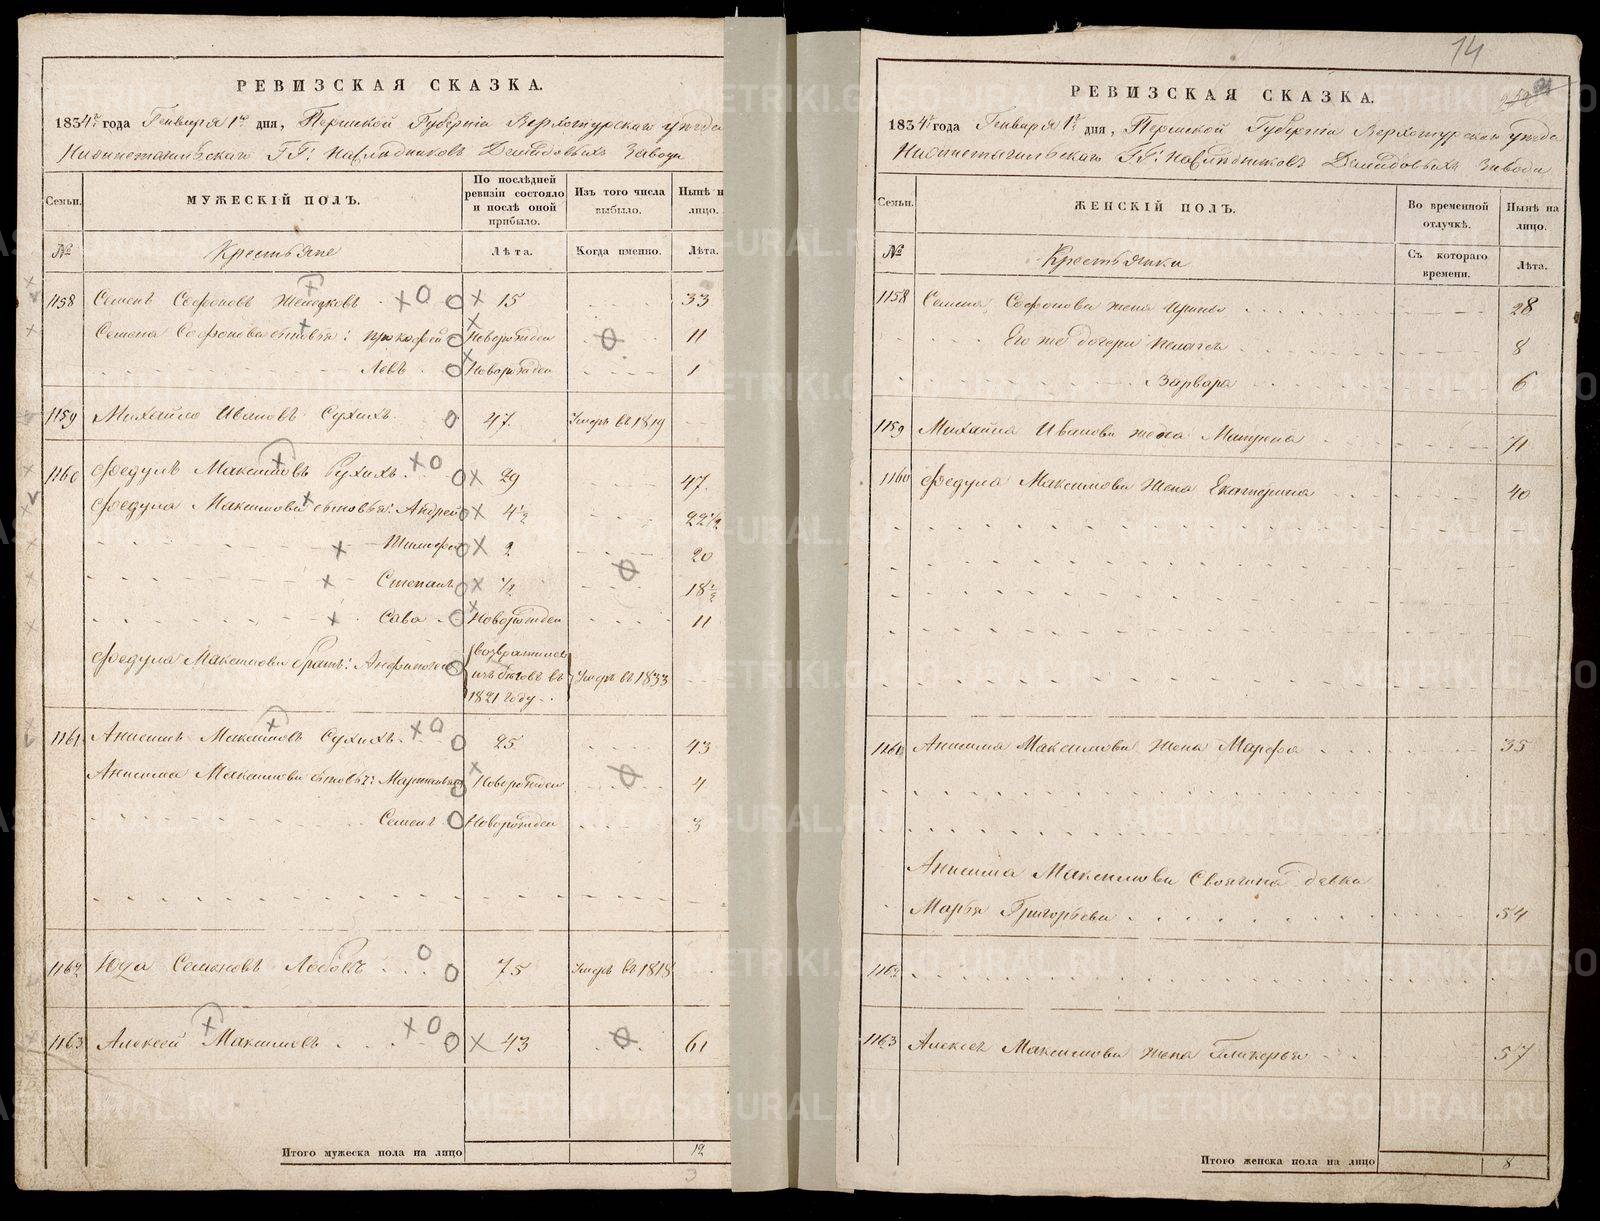 РЕВИЗСКАЯ СКАЗКА.
1834го года Генваря 1го дня, Пермской Губерніи Верхотурскаго уезда
Нижнетагильскаго ГГ: Наследниковъ Демидовыхъ Завода
Семьи.
МУЖЕСКІЙ ПОЛЪ.
По послѣдней ревизіи состояло и послѣ оной прибыло.
Изъ того числа выбыло.
Нынѣ на лицо.
№
Крестьяне
Лѣта.
Когда именно.
Лѣта.
1158 Семенъ Софроновъ 15 33
Семена Софронова сыновья: Прокофей Новорожден 11
Левъ Новорожден 1
1159 Михайло Ивановъ Сухихъ 47. Умеръ въ 1819
1160 Федулъ Максимовъ Сухихъ 29 47.
Федула Максимова сыновья: Андрей 4½ 22½
Тимофей 2 20
Степанъ ½ 18½
Сава Новорожден 11
Федула Максимова братъ: возвратился
изъ бѣговъ въ Умеръ въ 1833
1821 году
1161 Анисимъ Максимовъ Сухихъ. 25 43
Анисима Максимова сыновья: Новорожден 4
Семенъ Новорожден 3
1162 Юда Семеновъ Лобовъ 75 Умеръ въ 1818
1163 Алексей Максимовъ 43 61
Итого мужеска пола на лицо 12
3
14
РЕВИЗСКАЯ СКАЗКА.
1834го года Генваря 1го дня, Пермской Губерніи Верхотурскаго уезда
Нижнетагильскаго ГГ: Наследниковъ Демидовыхъ Завода
Семьи.
ЖЕНСКІЙ ПОЛЪ.
Во временной отлучкѣ.
Нынѣ на лицо.
№
Крестьянки
Съ котораго времени.
Лѣта.
1158 Семена Софронова жена Ирина 28
Его же дочери Пелагея 8
Варвара 6
1159 Михайла Иванова жена Матрена 71
1160 Федула Максимова жена Екатерина 40
1161 Анисима Максимова жена Марфа 35
Анисима Максимова Своячина девка
Марья Григорьева 54
1162
1163 Алексея Максимова жена Гликерья 57
Итого женска пола на лицо 8
METRIKI.GASO-URAL.RU